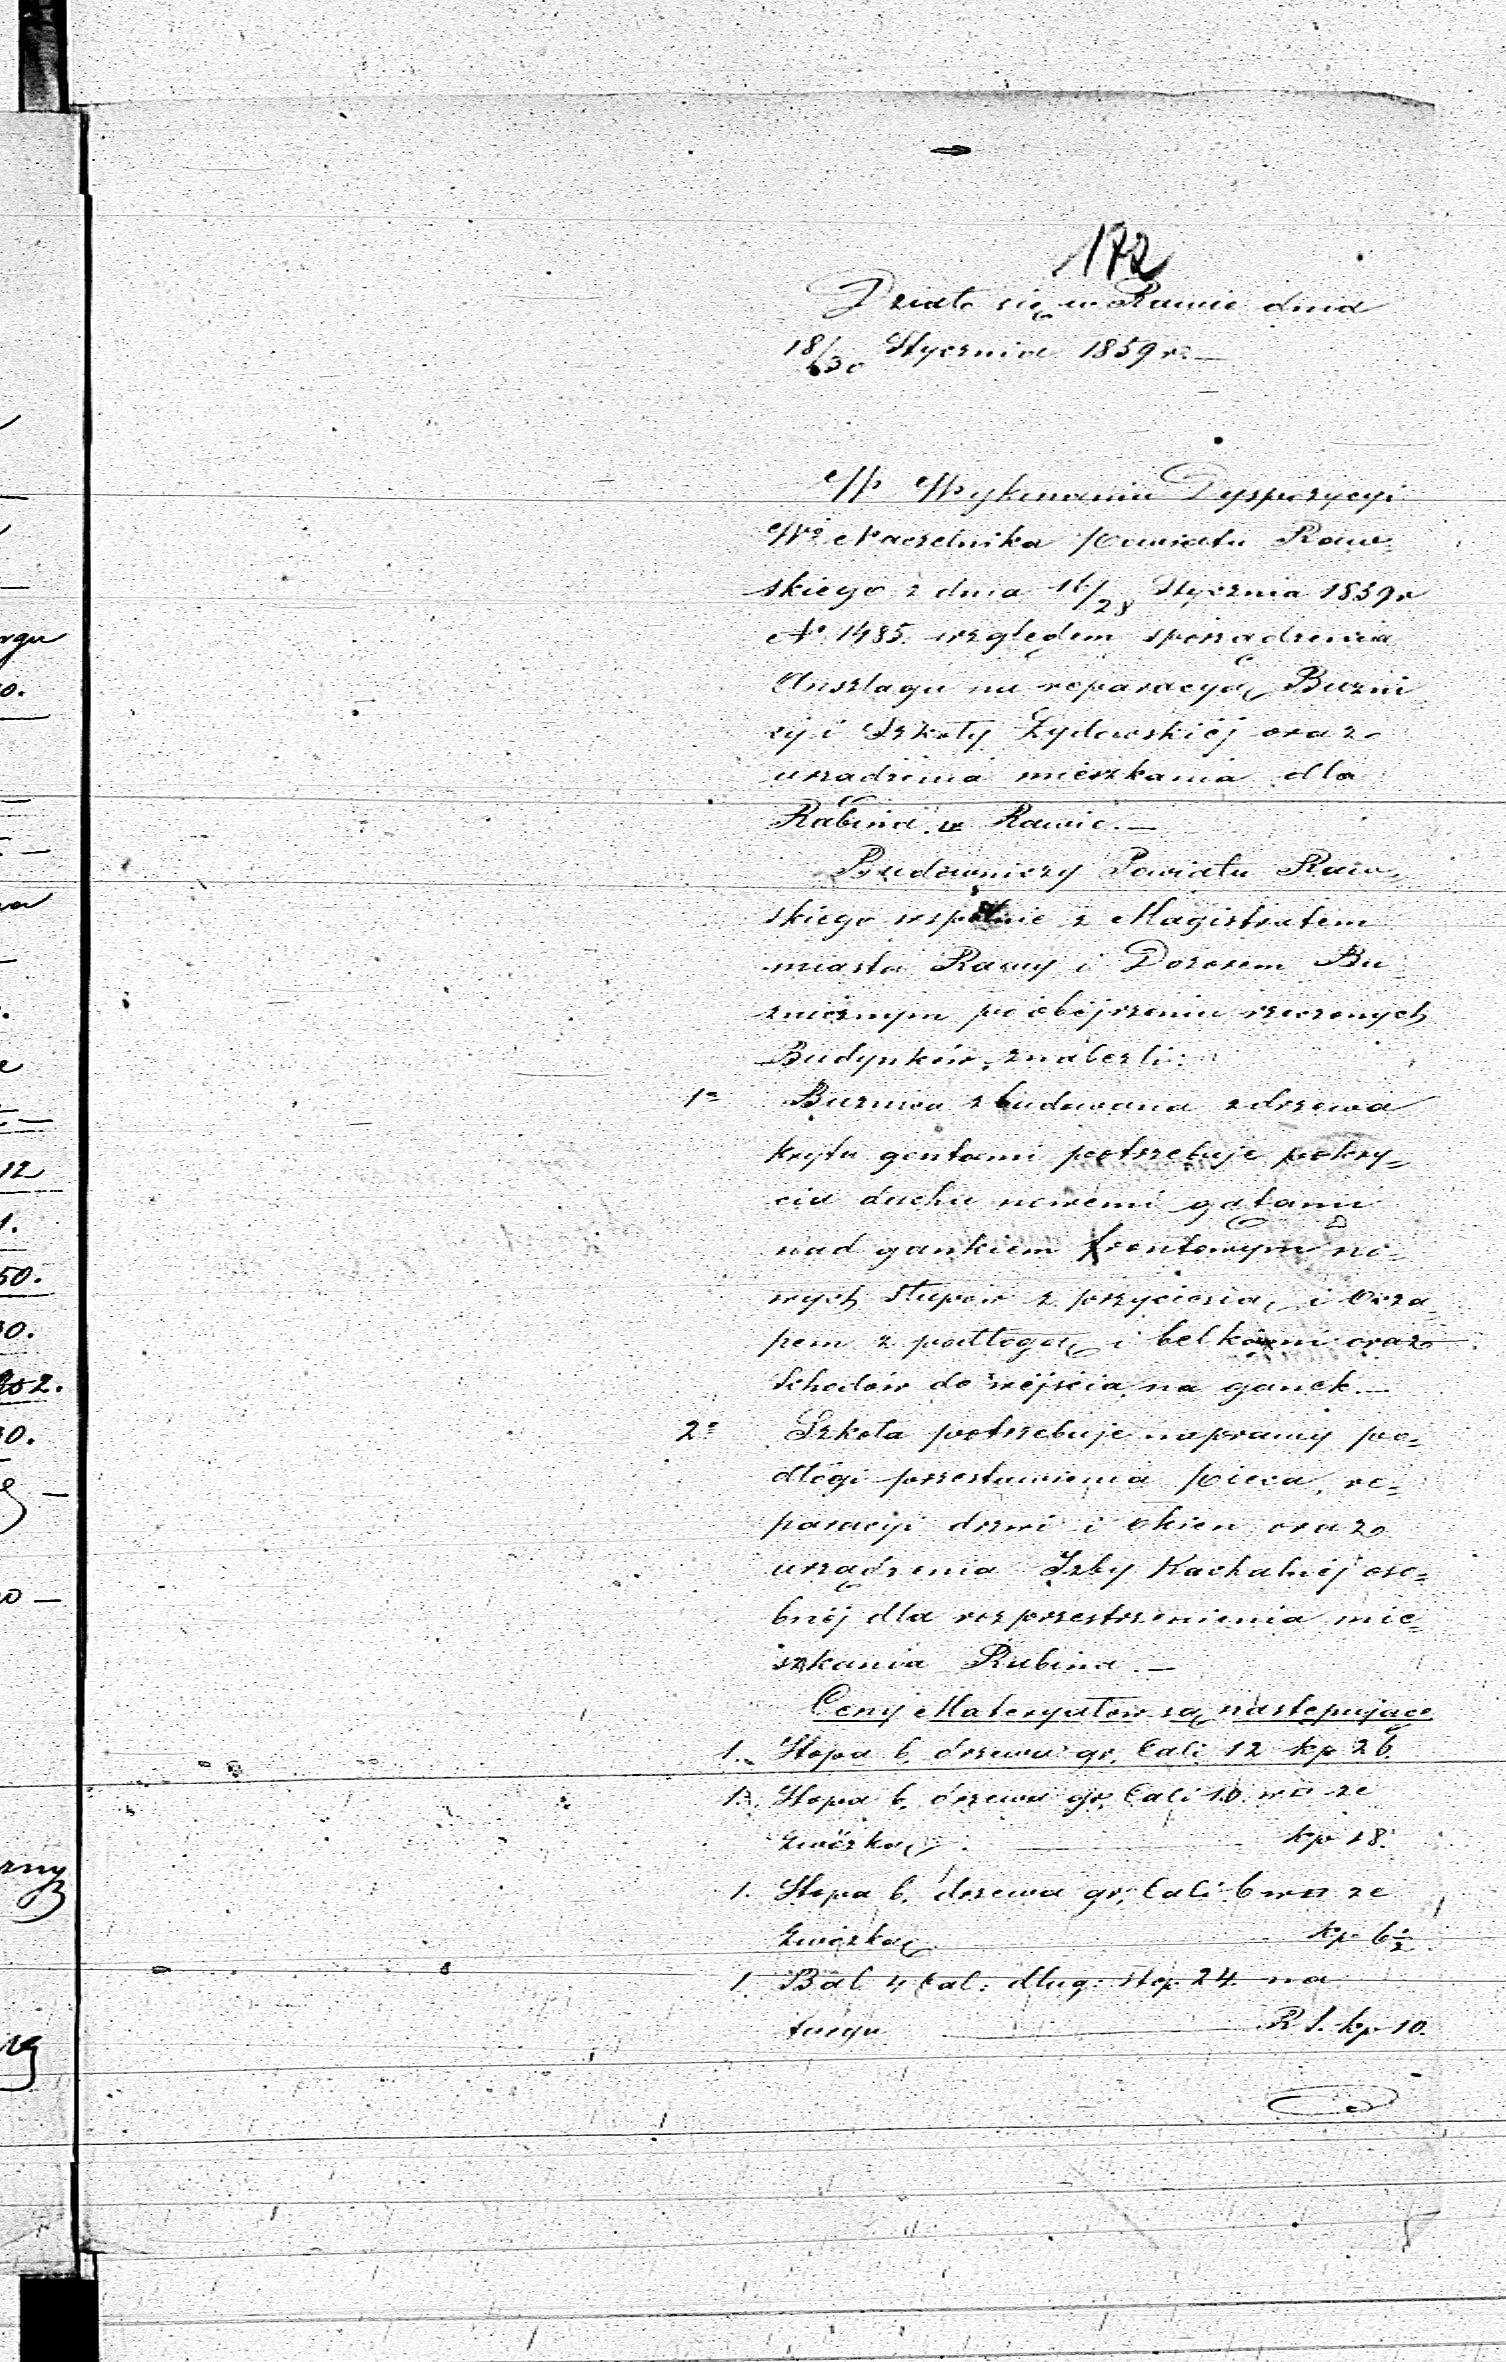 172
Działo się w Rawie dnia
18/30 Stycznia 1859 r. —
W Wykonaniu Dyspozycyi
Wº Naczelnika Powiatu Raw-
skiego z dnia 16/28 Stycznia 1859 r
Nº 1485. względem sporządzenia
Anszlagu na reparacyą Buźni
cy i Szkoły Żydowskiéj oraz
urządzenia mieszkania dla
Rabina w Rawie. —
Budowniczy Powiatu Raw-
skiego wspólnie z Magistratem
miasta Rawy i Dozorem Bu
źnicznym po obéjrzeniu rzeczonych
Budynków, znaleźli:
1º Buźnica zbudowana z drzewa
kryta gontami potrzebuje pokry-
cia dachu nowemi gątami
nad gankiem frontowym no-
wych Słupów z przyciesią, i
pem z podłogą i belkami oraz
Schodów do wéjścia na ganek. —
2º Szkoła potrzebuje naprawy po-
dłogi przestawienia pieca, re-
paracyi drzwi i okien oraz
urządzenia Izby Kachalnéj oso-
bnéj dla rozprzestrzenienia mie-
szkania Rabina. —
Ceny Materyałów są następujące
1. Stopa b. drzewa gr. Cali 12 kp 26.
1. Stopa b. drzewa gr. Cali 10. wa ze
zwózką kp 18.
1. Stopa b. drzewa gr. Cali 6 wa ze
zwózką kp 6½
1. Bal 4 Cal: dług: stop 24 na
targu R 1. kp 10.